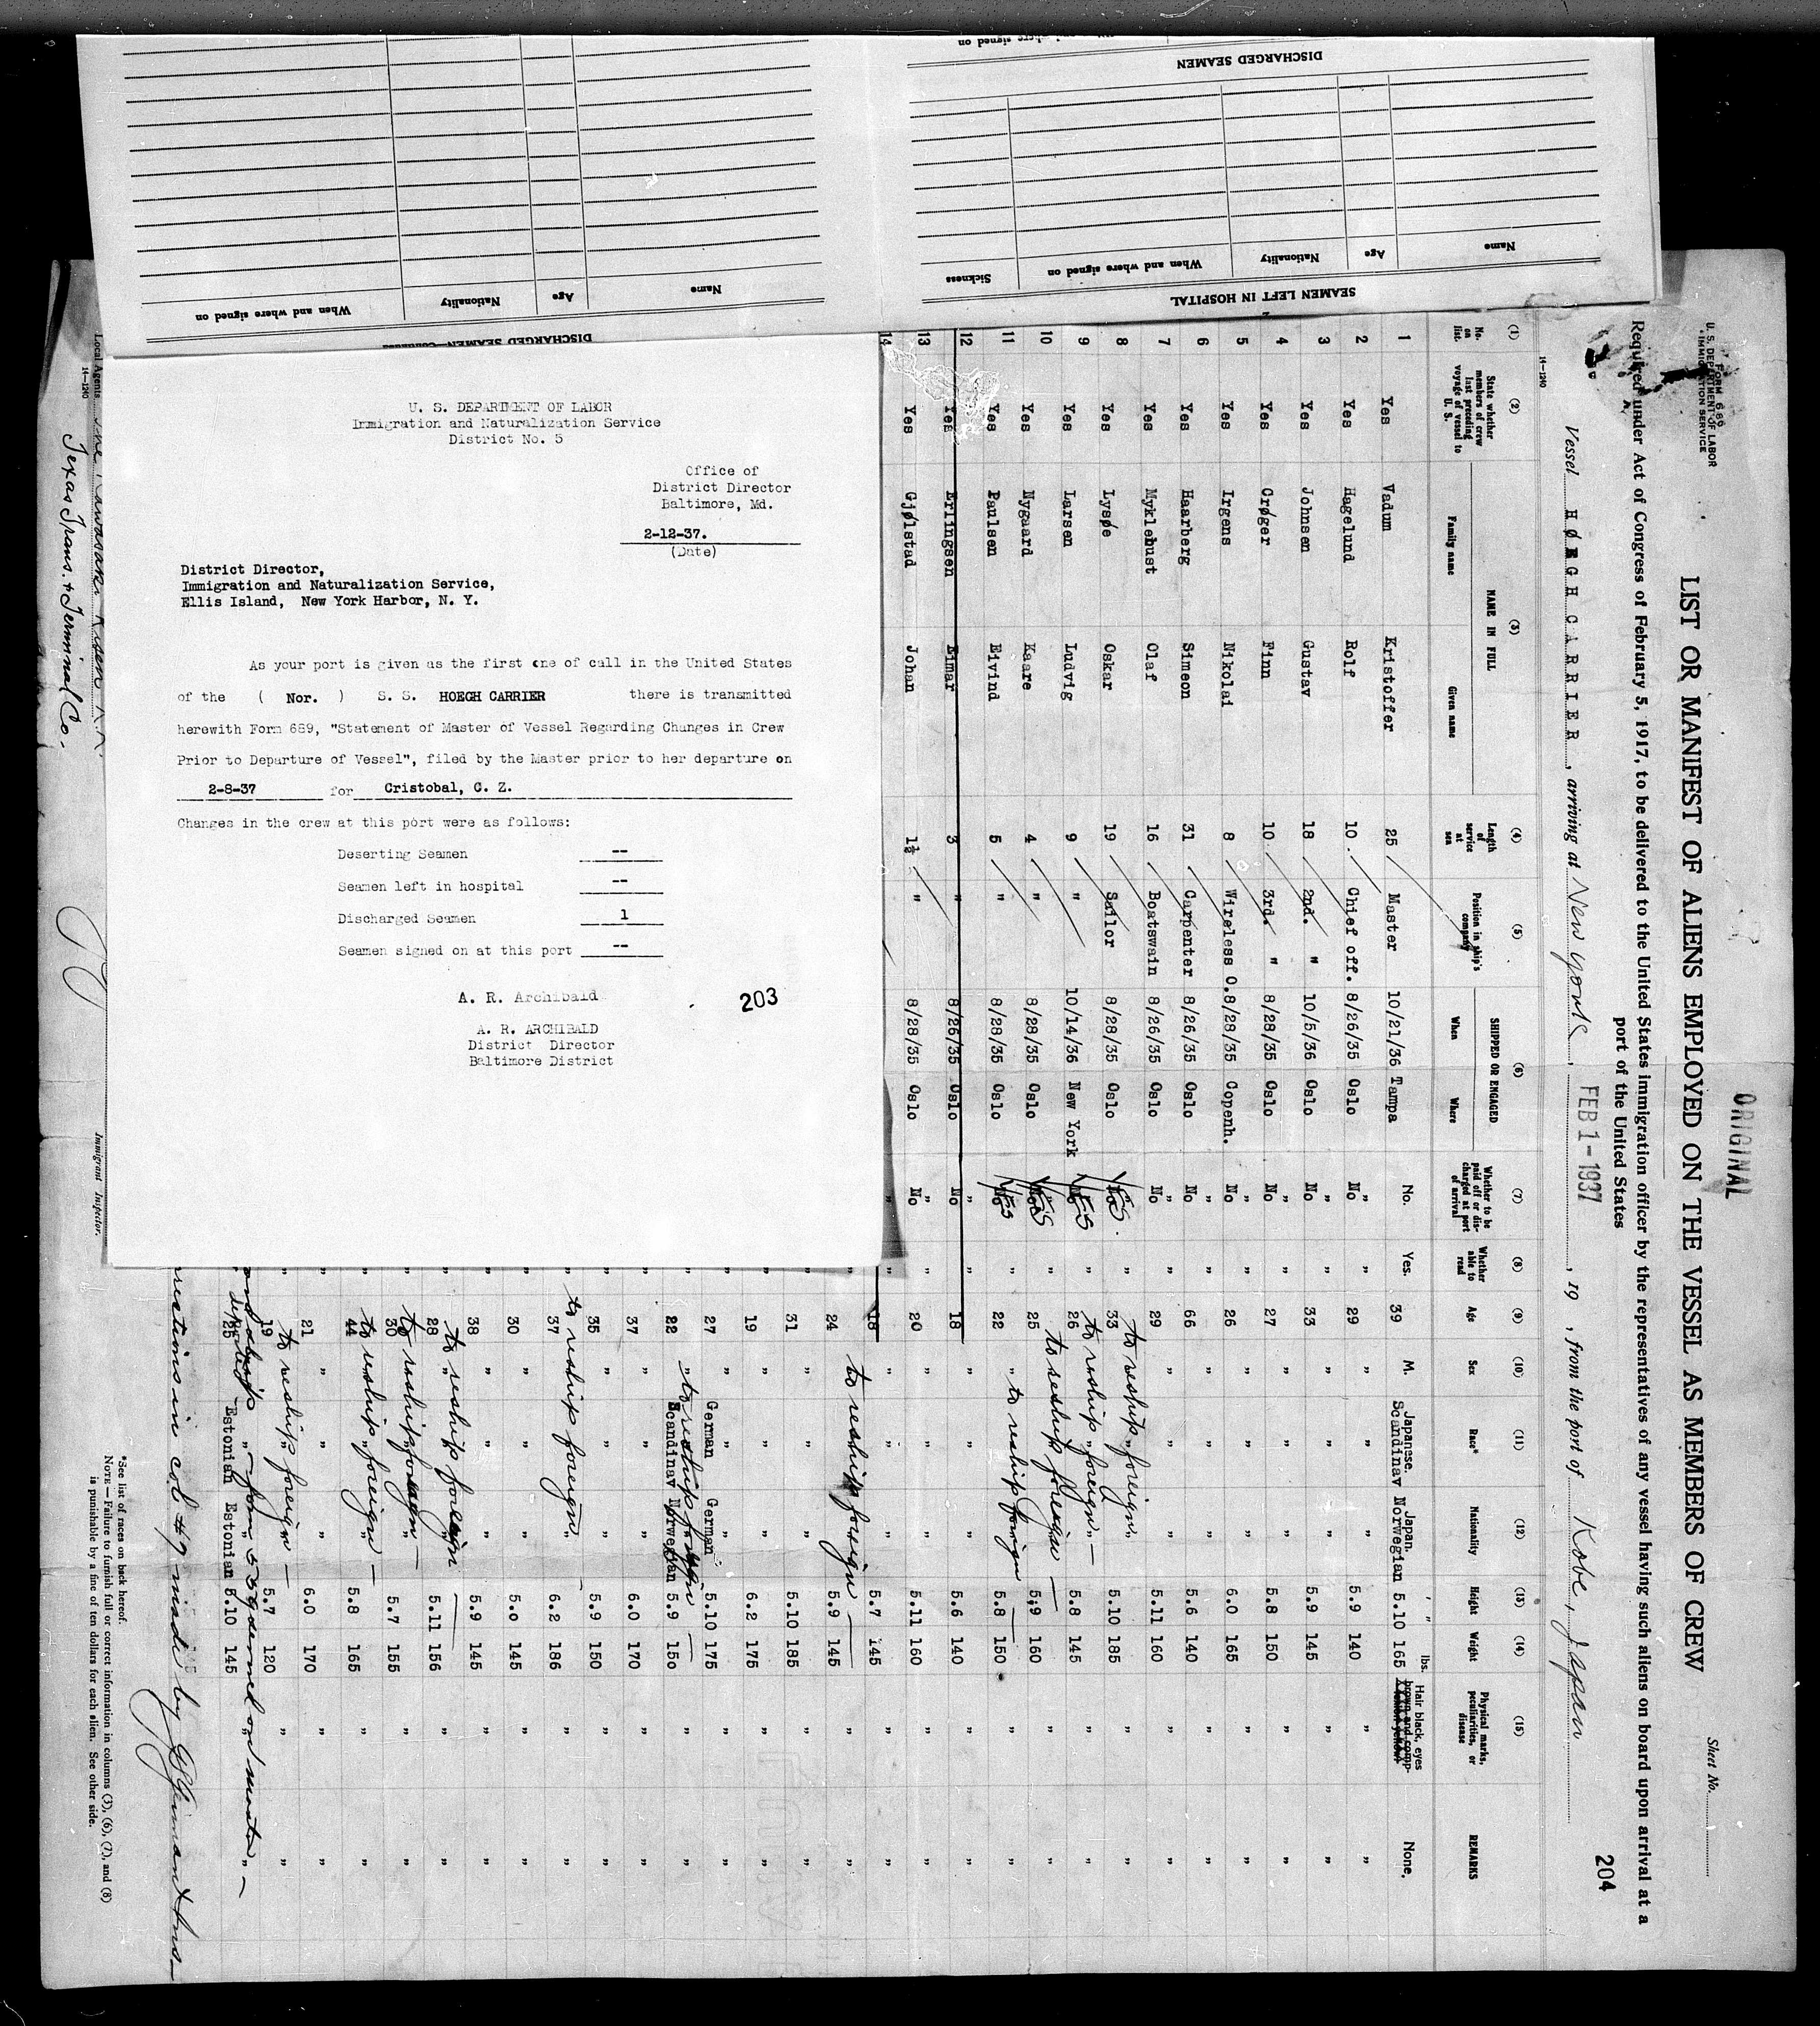 DISCHARGED SEAMEN
Name
Age
Nationality
When and where signed on
Sickness
SEAMEN LEFT IN HOSPITAL
Name
Age
Nationality
When and where signed on
DISCHARGED SEAMEN—Continued
U. S. DEPARTMENT OF LABOR
Immigration and Naturalization Service
District No. 5
Office of
District Director
Baltimore, Md.
2-12-37.
(Date)
District Director,
Immigration and Naturalization Service,
Ellis Island, New York Harbor, N. Y.
As your port is given as the first one of call in the United States
of the ( Nor. ) S. S. HOEGH CARRIER there is transmitted
herewith Form 689, "Statement of Master of Vessel Regarding Changes in Crew
Prior to Departure of Vessel", filed by the Master prior to her departure on
2-8-37 for Cristobal, C. Z.
Changes in the crew at this port were as follows:
Deserting Seamen --
Seamen left in hospital --
Discharged Seamen 1
Seamen signed on at this port --
A. R. Archibald
203
A. R. ARCHIBALD
District Director
Baltimore District
ORIGINAL
FORM 686
U. S. DEPARTMENT OF LABOR
IMMIGRATION SERVICE
Sheet No.
LIST OR MANIFEST OF ALIENS EMPLOYED ON THE VESSEL AS MEMBERS OF CREW
204
Required under Act of Congress of February 5, 1917, to be delivered to the United States immigration officer by the representatives of any vessel having such aliens on board upon arrival at a
port of the United States
Vessel HØEGH CARRIER, arriving at New York, FEB 1 - 1937, 19 , from the port of Kobe, Japan
14—1240
(1) (2) (3) (4) (5) (6) (7) (8) (9) (10) (11) (12) (13) (14) (15)
No. on list. State whether members of crew last preceding voyage of vessel to U. S. NAME IN FULL Family name Given name Length of service at sea Position in ship's company SHIPPED OR ENGAGED When Where Whether to be paid off or discharged at port of arrival Whether able to read Age Sex Race* Nationality Height Weight Physical marks, peculiarities, or disease REMARKS
Japanese. Japan. ' " lbs. Hair black, eyes
1 Yes Vadum Kristoffer 25 Master 10/21/36 Tampa No. Yes. 39 M. Scandinav Norwegian 5.10 165 None.
2 Yes Hagelund Rolf 10 Chief off. 8/26/35 Oslo No " 29 " " " 5.9 140 " "
3 Yes Johnsen Gustav 18 2nd. " 10/5/36 Oslo No " 33 " " " 5.9 145 " "
4 Yes Crøger Finn 10 3rd. " 8/28/35 Oslo No " 27 " " " 5.8 150 " "
5 Yes Irgens Nikolai 8 Wireless O. 8/28/35 Copenh. No " 26 " " " 6.0 165 " "
6 Yes Haarberg Simeon 31 Carpenter 8/26/35 Oslo No " 66 " " " 5.6 140 " "
7 Yes Myklebust Olaf 16 Boatswain 8/26/35 Oslo No " 29 " " " 5.11 160 " "
8 Yes Lysøe Oskar 19 Sailor 8/28/35 Oslo Yes " 33 " to reship foreign 5.10 185 " "
9 Yes Larsen Ludvig 9 " 10/14/36 New York Yes " 26 " to reship foreign — 5.8 145 " "
10 Yes Nygaard Kaare 4 " 8/28/35 Oslo Yes " 25 to reship foreign — 5.9 160 " "
11 Yes Paulsen Eivind 5 " 8/28/35 Oslo Yes " 22 " to reship foreign — 5.8 150 " "
12 Yes Erlingsen Eimar 3 " 8/26/35 Oslo No " 18 " " " 5.6 140 " "
13 Yes Gjølstad Johan 1½ " 8/28/35 Oslo No " 20 " " " 5.11 160 " "
14 " 18 " " " 5.7 145 " "
" 24 to reship foreign — 5.9 145 " "
" 31 " " " 5.10 185 " "
" 19 " " " 6.2 175 " "
" 27 " German German 5.10 175 " "
" 22 " to reship foreign — Scandinav Norwegian 5.9 150 " "
" 37 " " " 6.0 170 " "
" 35 " " " 5.9 150 " "
" 37 to reship foreign. 6.2 186 " "
" 30 " " " 5.0 145 " "
" 38 " " " 5.9 145 " "
" 28 to reship foreign — 5.11 156 " "
" 30 to reship foreign — 5.7 155 " "
" 44 to reship foreign — 5.8 165 " "
" 21 " " " 6.0 170 " "
" 19 to reship foreign — 5.7 120 " "
25 Estonian Estonian 5.10 145
deported — form 559 served on master —
in col #7 made by
*See list of races on back hereof.
NOTE—Failure to furnish full or correct information in columns (3), (6), (7), and (8)
is punishable by a fine of ten dollars for each alien. See other side.
Immigrant Inspector.
Local Agents Kawasaki Kisen K. K.
14—1240
Texas Trans. & Terminal Co.